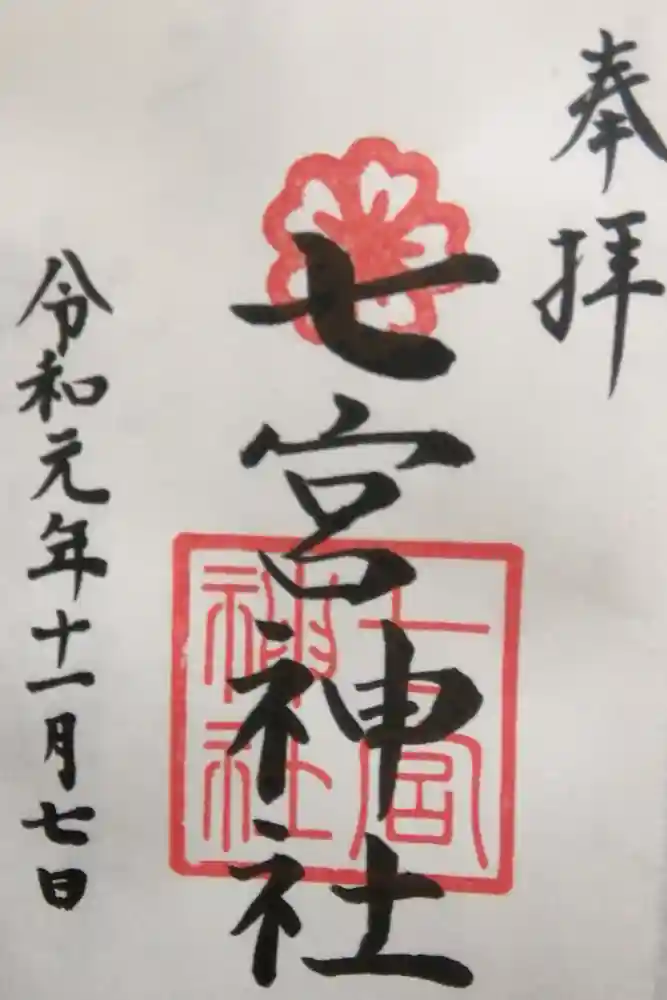 奉拝
七宮神社
七宮
神社
令和元年十一月七日